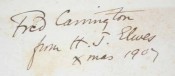 Fred Carrington
from H. J. Elwes
Xmas 1907